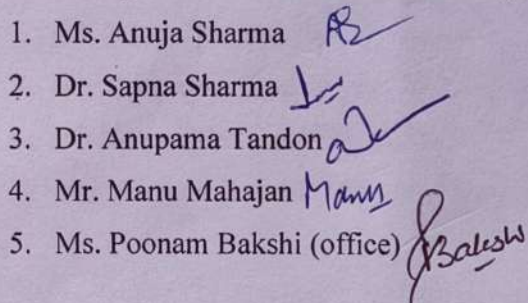 1. Ms. Anuja Sharma
2. Dr. Sapna Sharma
3. Dr. Anupama Tandon
4. Mr. Manu Mahajan Manu
5. Ms. Poonam Bakshi (office) Bakshi